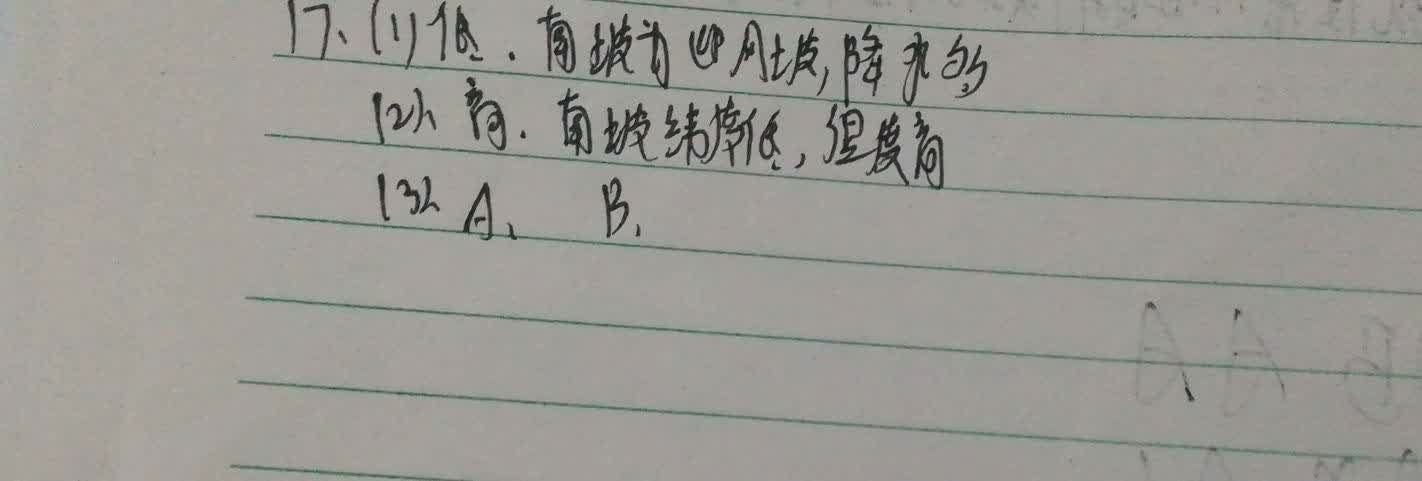 17、(1)低.南坡为迎风坡,降水多
(2)、高.南坡纬度低,温度高
(3)、A、 B、